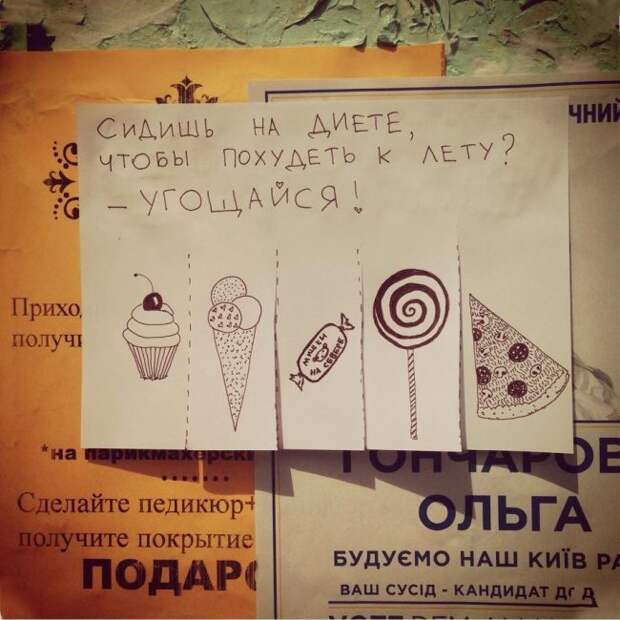 СИДИШЬ НА ДИЕТЕ,
ЧТОБЫ ПОХУДЕТЬ К ЛЕТУ?
– УГОЩАЙСЯ!
МИШКИ
НА СЕВЕРЕ
ЧНИЙ
Прихо
получи
*на парикмахерск
Сделайте педикюр+
получите покрытие
ПОДАР
ГОНЧАРОВ
ОЛЬГА
БУДУЄМО НАШ КИЇВ РА
ВАШ СУСІД - КАНДИДАТ